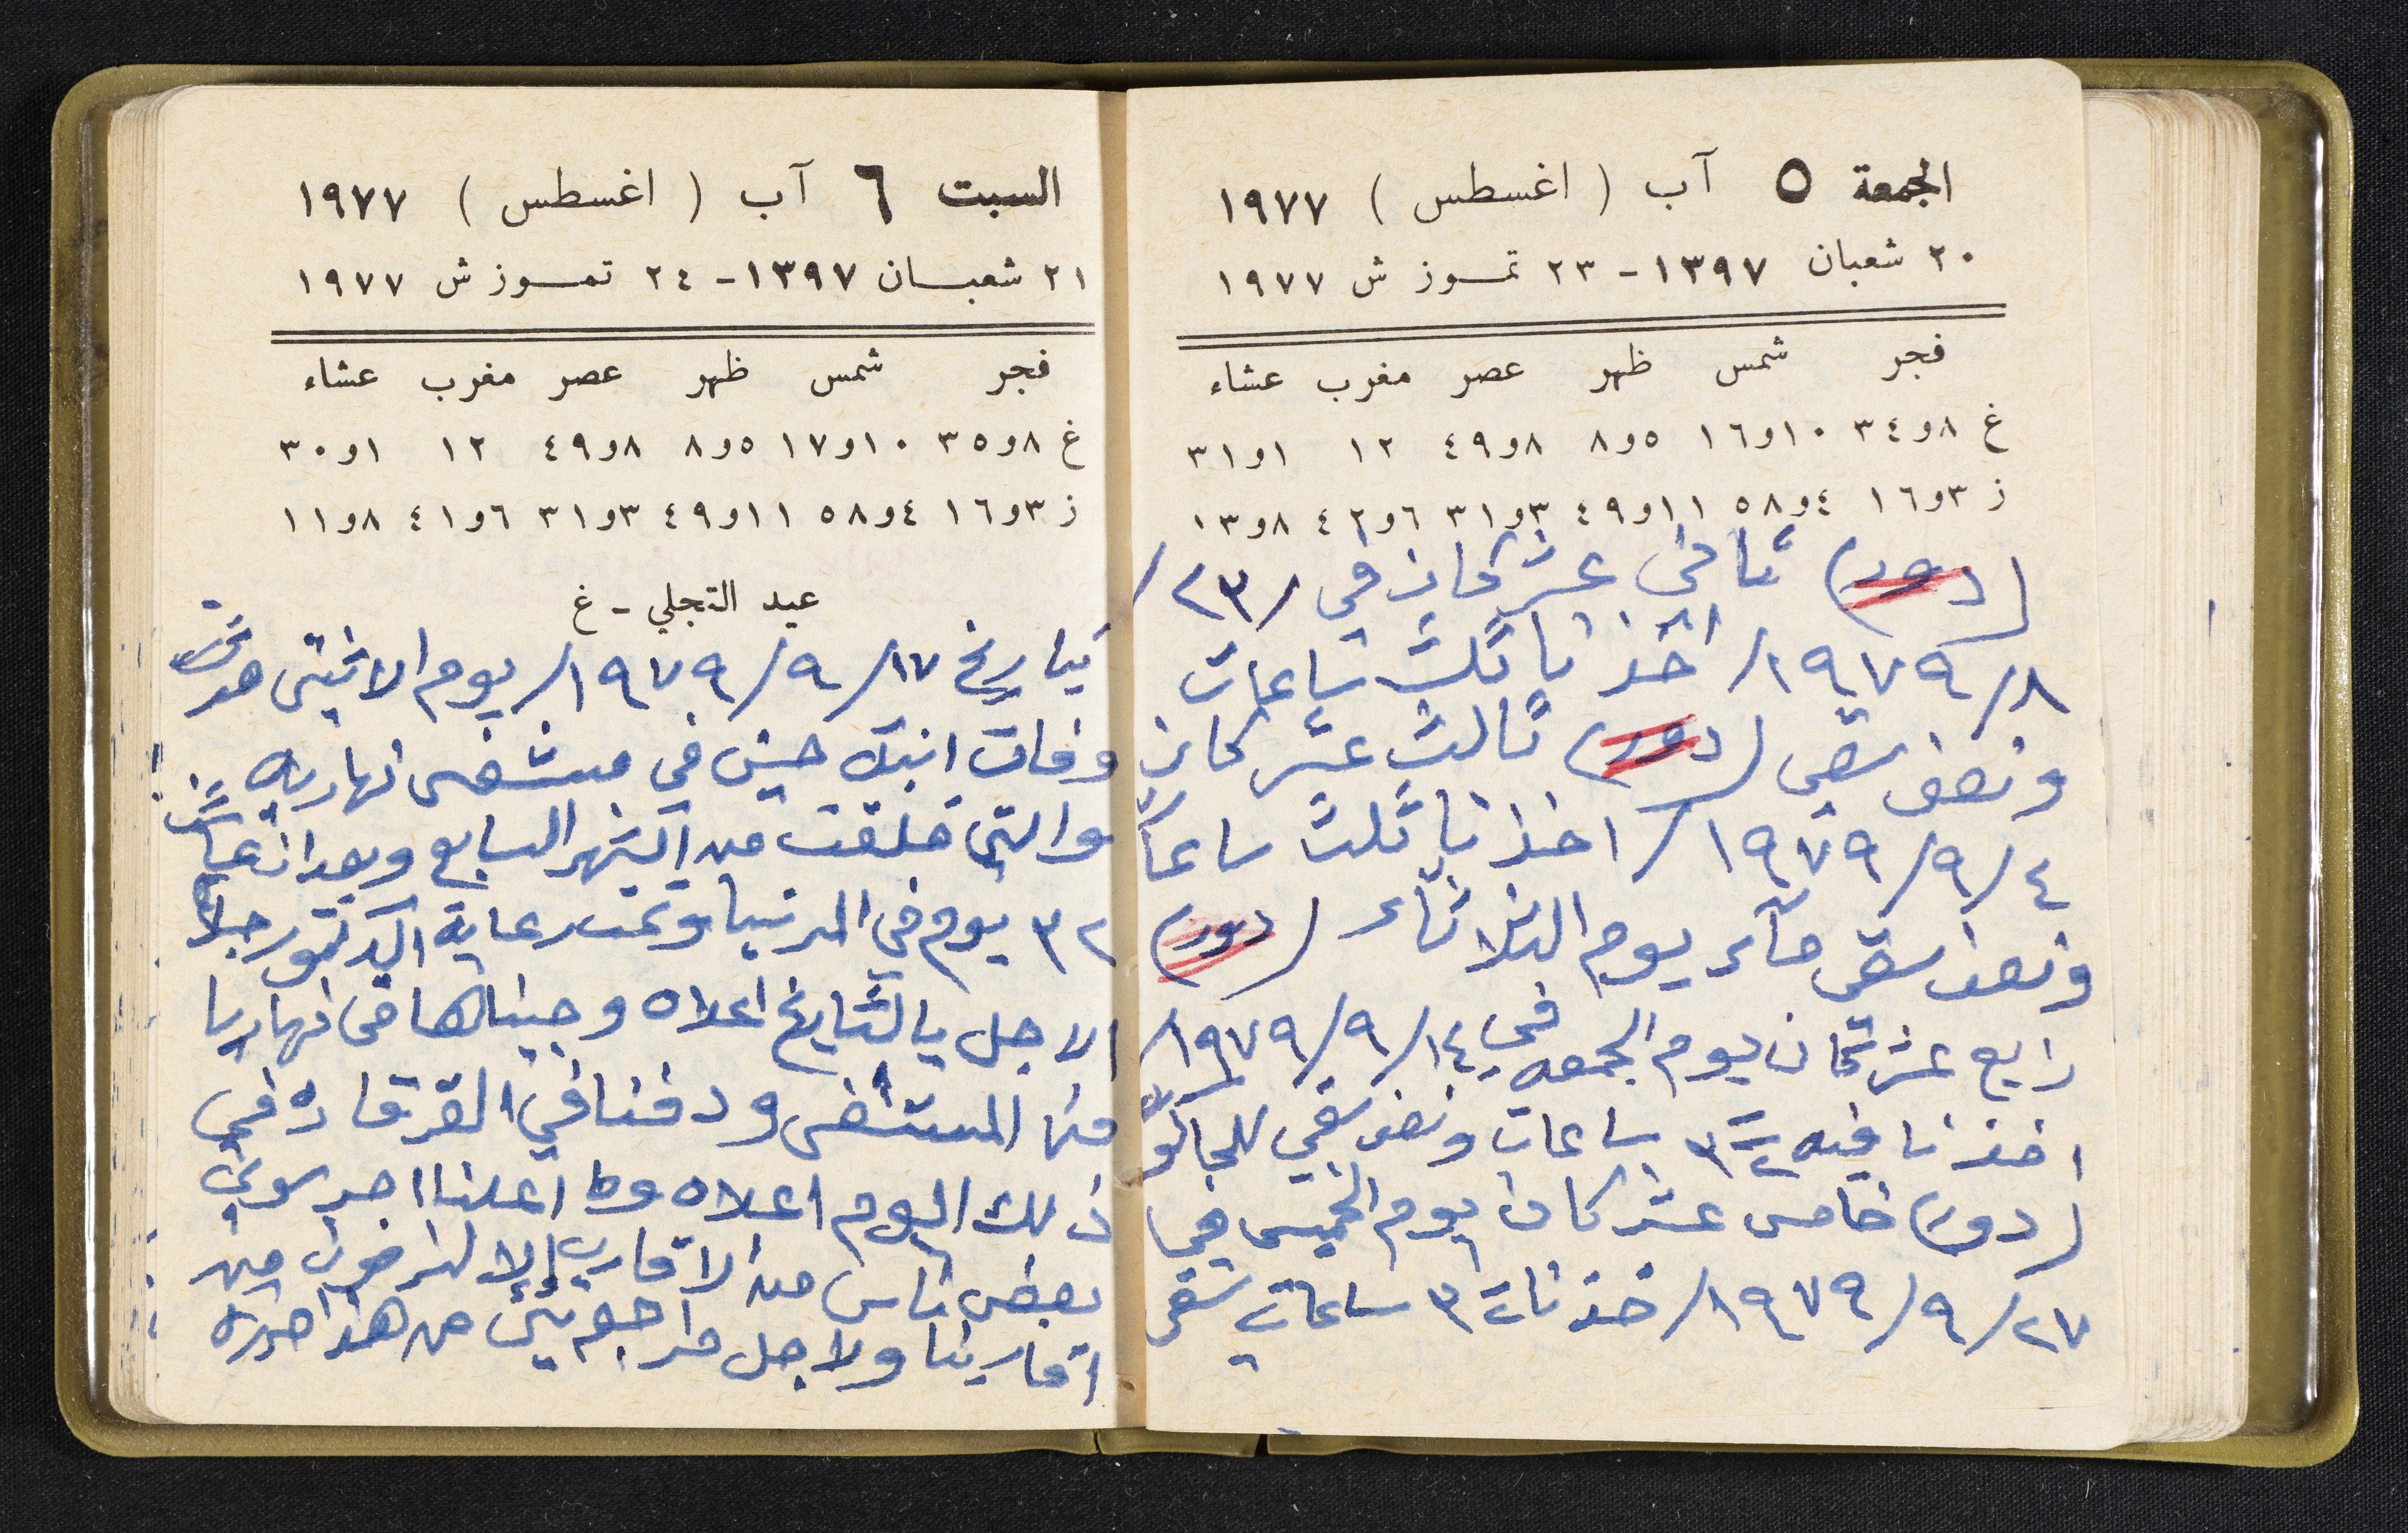 الجمعة ٥ آب ( اغسطس ) ١٩٧٧
٢٠ شعبان ١٣٩٧ - ٢٣ تمـوز ش ١٩٧٧
فجر شمس ظهر عصر مغرب عشاء
غ ٨و٣٤ ١٠و١٦ ٥و٨ ٨و٤٩ ١٢ ١و٣١
ز ٣و١٦ ٤و٥٨ ١١و٤٩ ٣و٣١ ٦و٤٢ ٨و١٣
(دور) ثاني عشر كان في /٢٣/
٨/١٩٧٩/ اخذنا ثلث ساعات
ونصف سقي (دور) ثالث عشر كان
٤/٩/١٩٧٩/ اخذنا ثلث ساعات
ونصف سقي مآء يوم الثلاثاء (دور)
رابع عشر كان يوم الجمعه في ١٤/٩/١٩٧٩/
اخذنا فيه ٣ ساعات ونصف سقي
(دور) خامس عشر كان يوم الخميس في
٢٧/٩/١٩٧٩/ خذنا ٣ ساعات سقي
السبت ٦ آب ( اغسطس ) ١٩٧٧
٢١ شعبـان ١٣٩٧ - ٢٤ تمـوز ش ١٩٧٧
فجر شمس ظهر عصر مغرب عشاء
غ ٨و٣٥ ١٠و١٧ ٥و٨ ٨و٤٩ ١٢ ١و٣٠
ز ٣و١٦ ٤و٥٨ ١١و٤٩ ٣و٣١ ٦و٤١ ٨و١١
عيد التجلي - غ
بتاريخ ١٧/٩/١٩٧٩/ يوم الاثنين حدثت
وفات ابنة حسن في مستشفى نهاريه
والتي خلقت من الشهر السابع وبعد ان عاشت
٣٢ يوم في الدنيا وتحت رعاية الدكتور جلاها
الاجل بالتاريخ اعلاه وجبناها من نهاريا
من المستشفى ودفنا في القرقاده في
ذلك اليوم اعلاه وما اعلنا احد سوى
بعض ناس من الاقارب إلا من
اقاربنا ولاجل من هذا